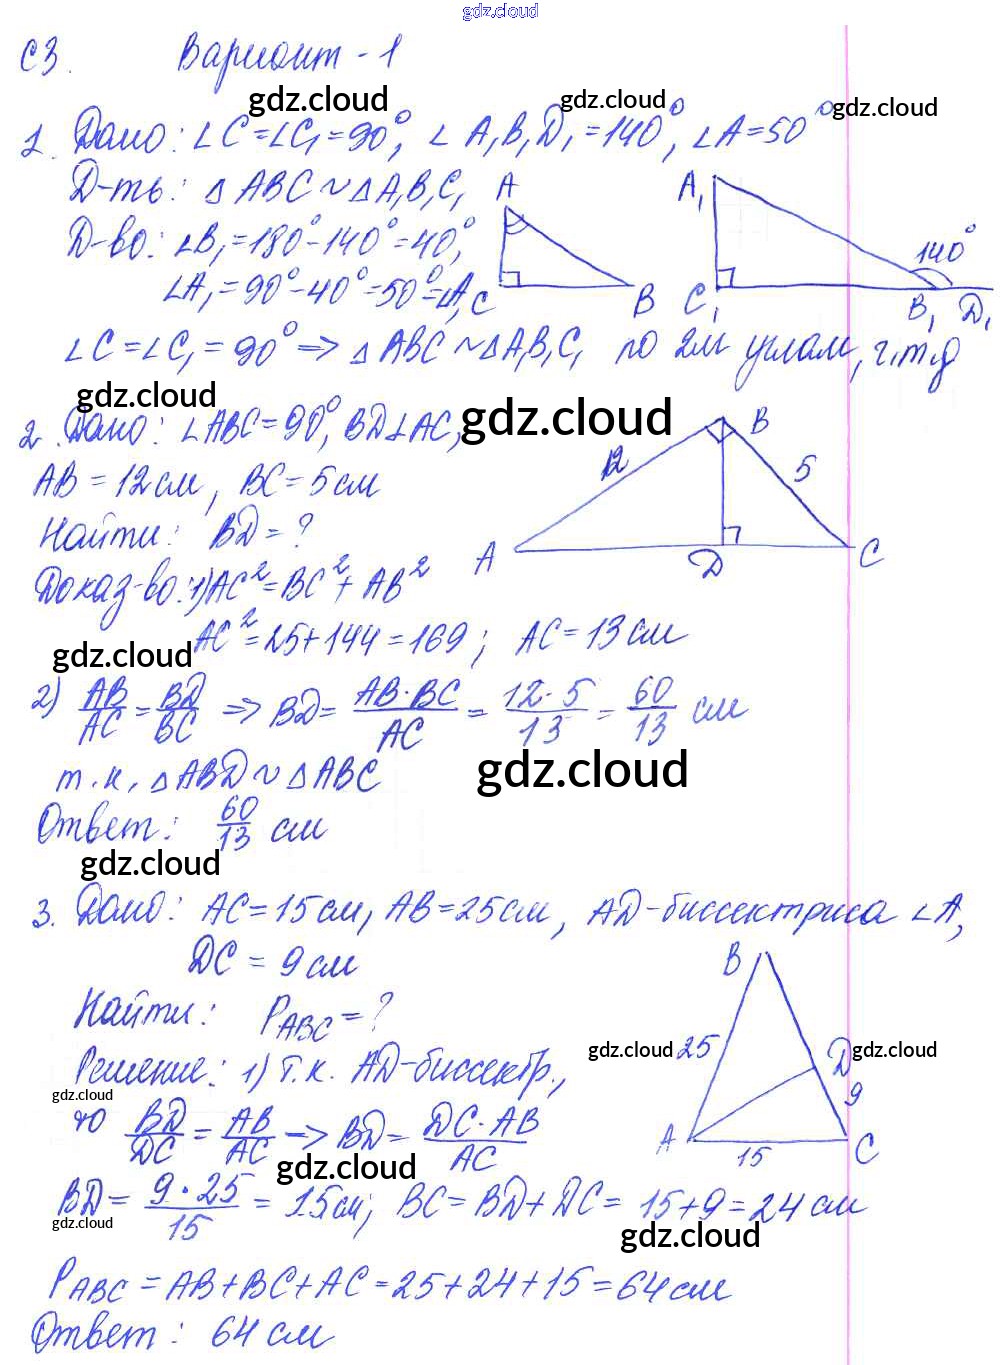 gdz.cloud
С3. Вариант - 1
gdz.cloud gdz.cloud gdz.cloud
1. Дано: ∠C=∠C₁=90°, ∠A₁B₁D₁=140°, ∠A=50°
Д-ть: △ABC∼△A₁B₁C₁
Д-во: ∠B₁=180°-140°=40°,
∠A₁=90°-40°=50°=∠A,
A C B
A₁ C₁ B₁ D₁ 140°
∠C=∠C₁=90° => △ABC∼△A₁B₁C₁ по 2м углам, ч.т.д
gdz.cloud gdz.cloud
2. Дано: ∠ABC=90°, BD⊥AC,
AB=12см, BC=5см
Найти: BD=?
A B C D 12 5
Доказ-во: 1) AC²=BC²+AB²
AC²=25+144=169; AC=13см
gdz.cloud
2) AB/AC = BD/BC => BD = AB·BC/AC = 12·5/13 = 60/13 см
т.к. △ABD∼△ABC
gdz.cloud
Ответ: 60/13 см
gdz.cloud
3. Дано: AC=15см, AB=25см, AD-биссектриса ∠A,
DC=9см
Найти: P_ABC=?
B 25 D 9 A 15 C
gdz.cloud gdz.cloud
Решение: 1) Т.к. AD-биссектр.,
gdz.cloud
то BD/DC = AB/AC => BD = DC·AB/AC
gdz.cloud
BD = 9·25/15 = 15см; BC=BD+DC=15+9=24см
gdz.cloud gdz.cloud
P_ABC=AB+BC+AC=25+24+15=64см
Ответ: 64см